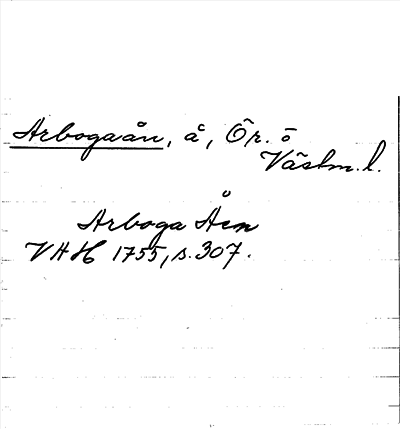 Arbogaån, å, Ör. o
Västm. l.
Arboga Åen
VAH 1755, s. 307.